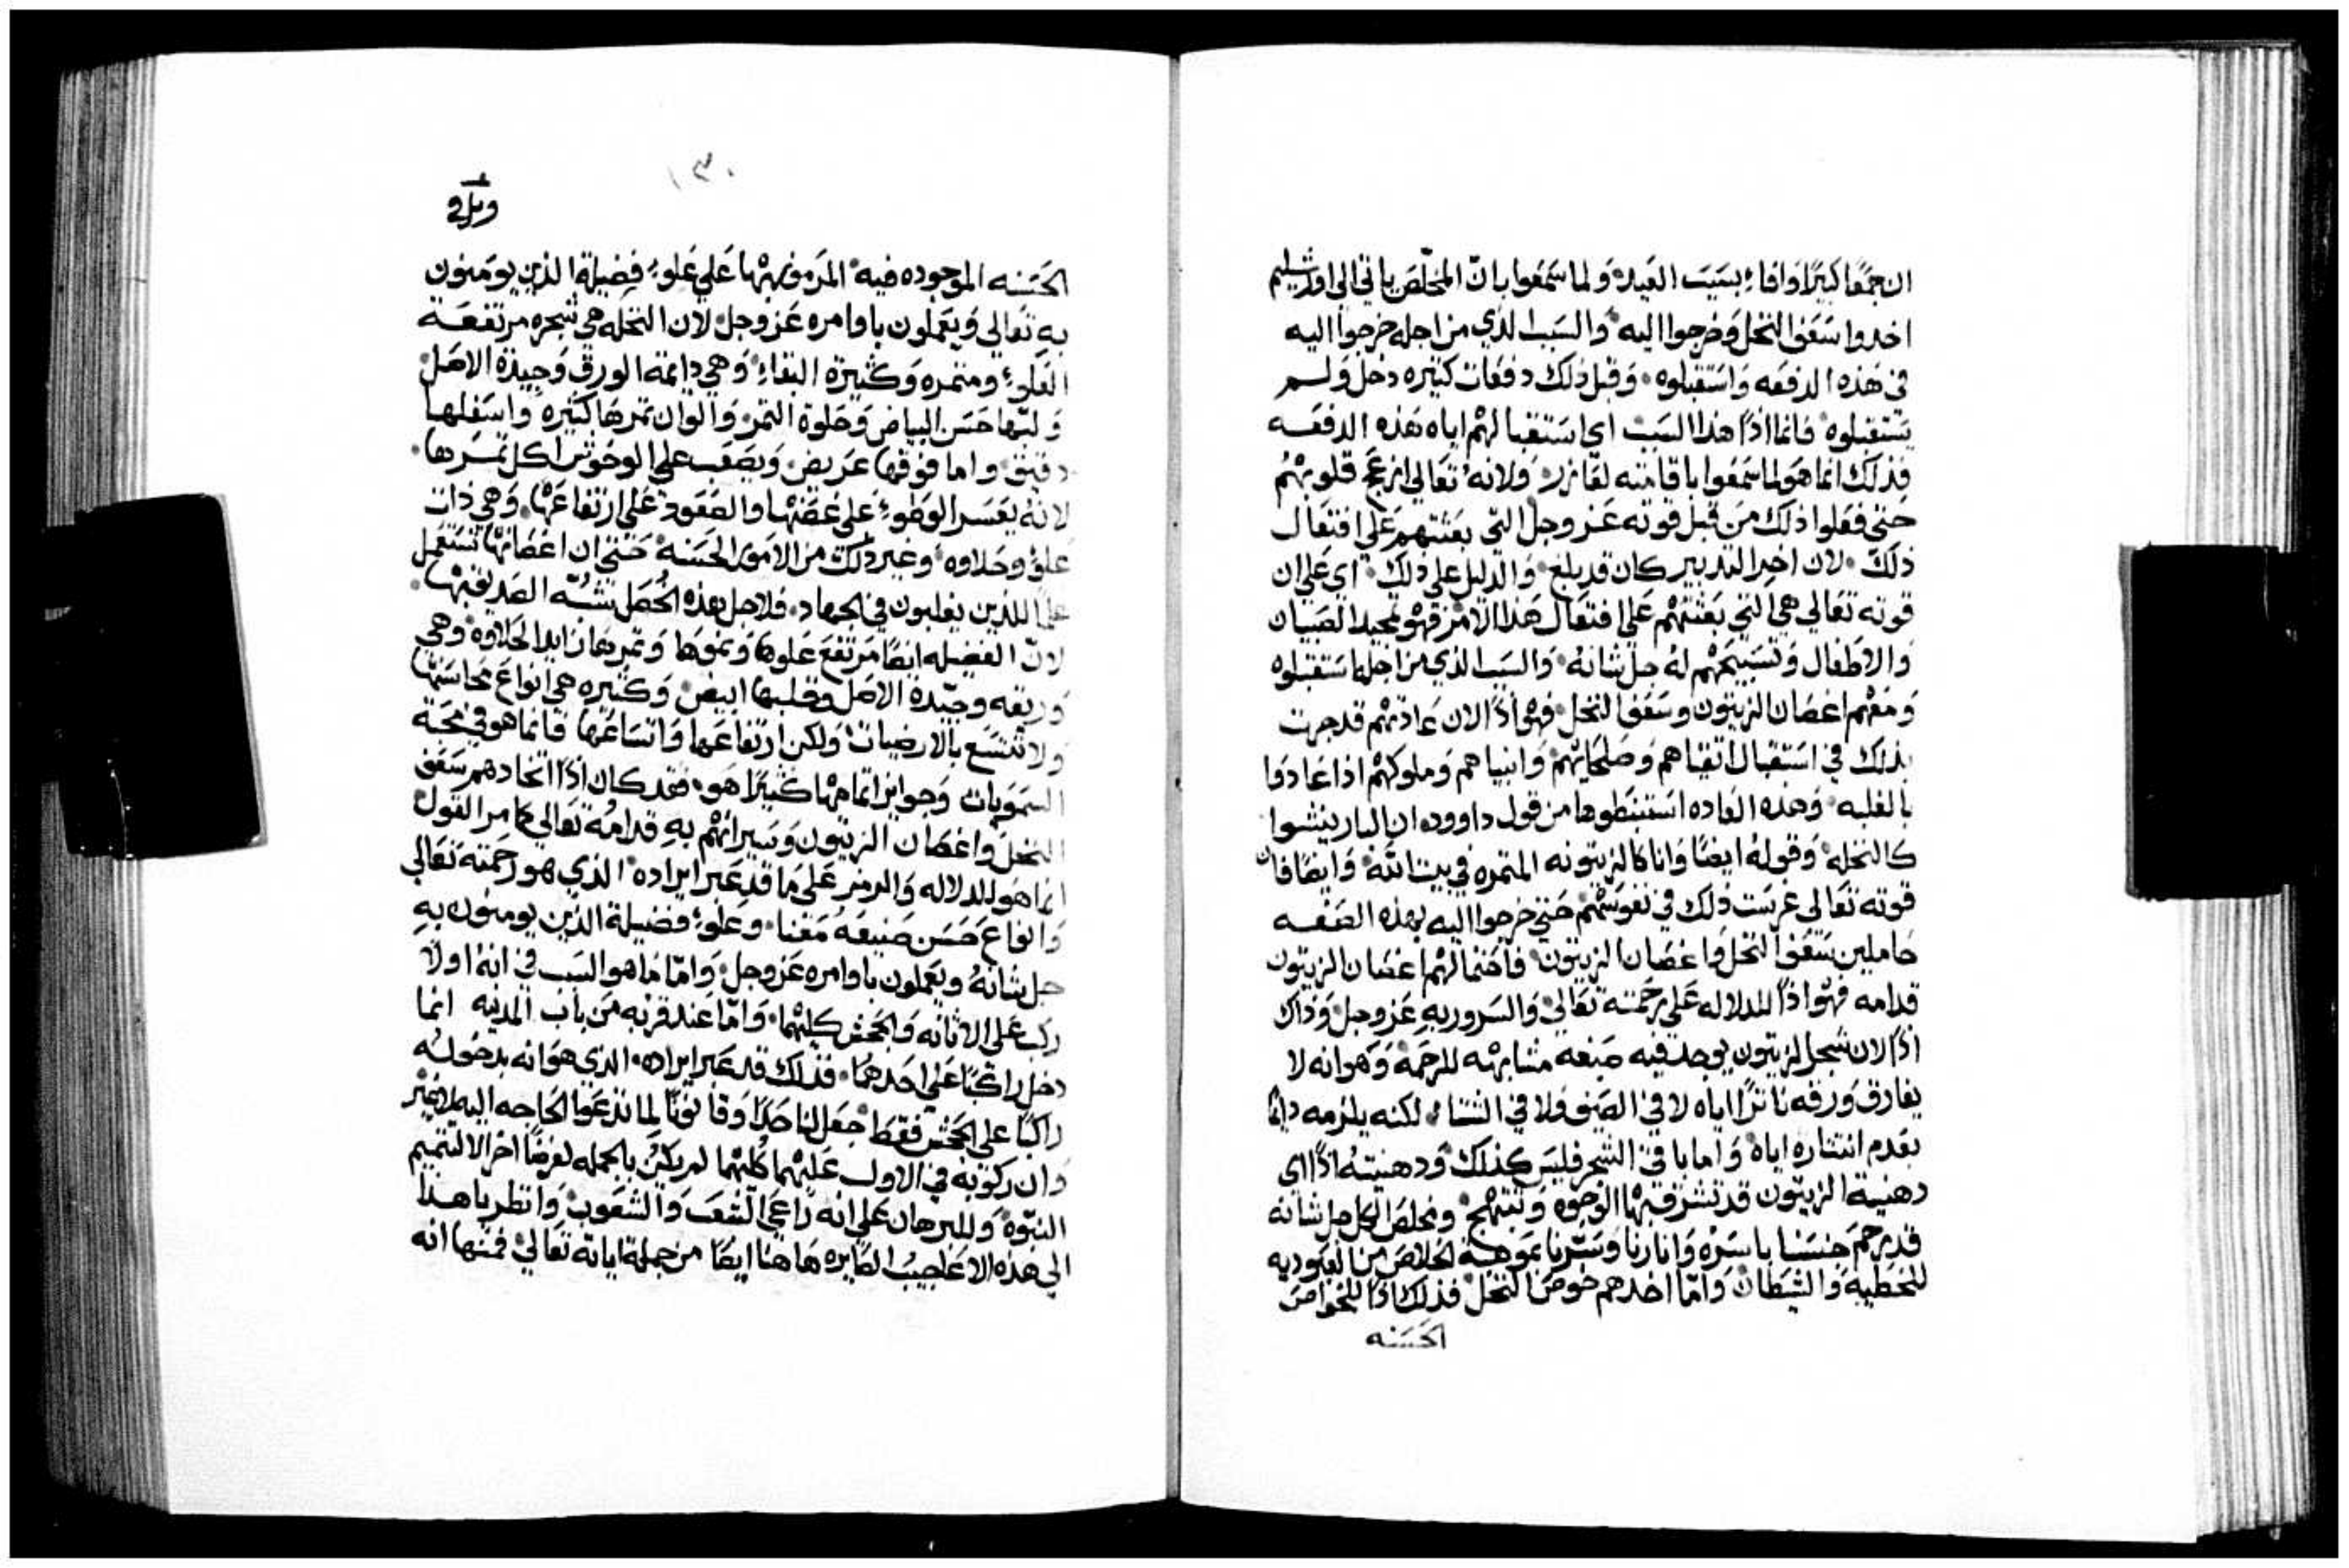 ان جمعًا كبيرًا وافاء بسبب العيد ولما سمعوا بان المخلص ياتي الى اورشليم
اخدوا سعف النخل وخرجوا اليه والسبب الذي من اجله خرجوا اليه
في هذه الدفعه واستقبلوه وقبل ذلك دفعات كثيره دخل ولم
يستقبلوه فانما اذًا هذا السبب اي استقبالهم اياه هذه الدفعه
فذلك انما هو لما سمعوا باقامته لعازر ولانه تعالى ازعج قلوبهم
حتى فعلوا ذلك من قبل قوته عز وجل التي بعثتهم على افتعال
ذلك لان اخر التدبير كان قد بلغ والدليل على ذلك اي على ان
قوته تعالى هي التي بعثتهم على افتعال هذا الامر فهو تمجيد الصبيان
والاطفال وتسبيحهم له جل شانه والسبب الذي من اجله استقبلوه
ومعهم اغصان الزيتون وسعف النخل فهو اذًا لان عادتهم قد جرت
بذلك في استقبال اتقياهم وصلحايهم وانبياهم وملوكهم اذا عادوا
بالغلبه وهذه العاده استنبطوها من قول داوود ان البار ينشوا
كالنخله وقوله ايضًا وانا كالزيتونه المتمره في بيت الله وايضًا فان
قوته تعالى غرست ذلك في نفوسهم حتى خرجوا اليه بهذه الصفه
حاملين سعف النخل واغصان الزيتون فاحتمالهم اغصان الزيتون
قدامه فهو اذًا للدلاله على رحمته تعالى والسرور به عز وجل وذاك
اذًا لان شجر الزيتون يوجد فيه صنعه مشابهه للرحمة وهو انه لا
يفارق ورقه ناثرًا اياه لا في الصيف ولا في الشتاء لكنه يلزمه دايمًا
بعدم انتثاره اياه واما باقي الشجر فليس كذلك ودهنيته اذًا اي
دهنية الزيتون قد تشرق بها الوجوه وتبتهج ومخلص الكل جل شانه
قد رحم جنسنا باسره وانارنا وسرنا بموهبة الخلاص من العبوديه
للخطيه والشيطان واما اخدهم خوص النخل فذلك اذًا للخواص
الحسنه
١٣٠
الحسنه الموجوده فيه المرموز بها على علو فضيلة الذين يومنون
به تعالى ويعملون باوامره عز وجل لان النخله هي شجره مرتفعة
العلو ومتمره وكثيرة البقاء وهي دايمة الورق وجيدة الاصل
ولبها حسن البياض وحلوة التمر والوان تمرها كثيره واسفلها
دقيق واما فوقها عريض ويصعب على الوحوش اكل تمرها
لانه يعسر الوطو على غصنها والصعود على ارتفاعها وهي ذات
علو وحلاوه وغير ذلك من الامور الحسنة حتى ان اغصانها تستعمل
علمًا للذين يغلبون في الجهاد فلاجل هذه الخصل تشبه الصديق بها
لان الفضيله ايضًا مرتفع علوها ونموها وتمرها زايد الحلاوه وهي
وريقه وجيدة الاصل وقلبها ابيض وكثيره هي انواع محاسنها
ولا تتسع بالارضيات ولكن ارتفاعها واتساعها فانما هو في محبة
السمويات وجوايز اتمامها كثيرًا هو فقد كان اذًا اتخادهم سعف
النخل واغصان الزيتون ومسيرانهم به قدامه تعالى كما مر القول
انما هو للدلاله والرمز على ما قد عبر ايراده الذي هو رحمته تعالى
وانواع حسن صنيعه معنا وعلو فضيلة الذين يومنون به
جل شانه ويعملون باوامره عز وجل واما ما هو السبب في انه اولًا
ركب على الاتانه والجحش كليهما واما عند قربه من باب المدينه انما
دخل راكبًا على احدهما فذلك قد عبر ايراده الذي هو انه بدخوله
راكبًا على الجحش فقط جعل لنا حدًا وقانونًا لما تدعوا الحاجه اليه لا غير
وان ركوبه في الاول عليهما كليهما لم يكن بالجمله لغرضًا اخر الا لتتميم
النبوة وللبرهان على انه راعي الشعب والشعوب وانظر يا هذا
الى هذه الاعاجيب الصايره هاهنا ايضًا من جملة اياته تعالى فمنها انه